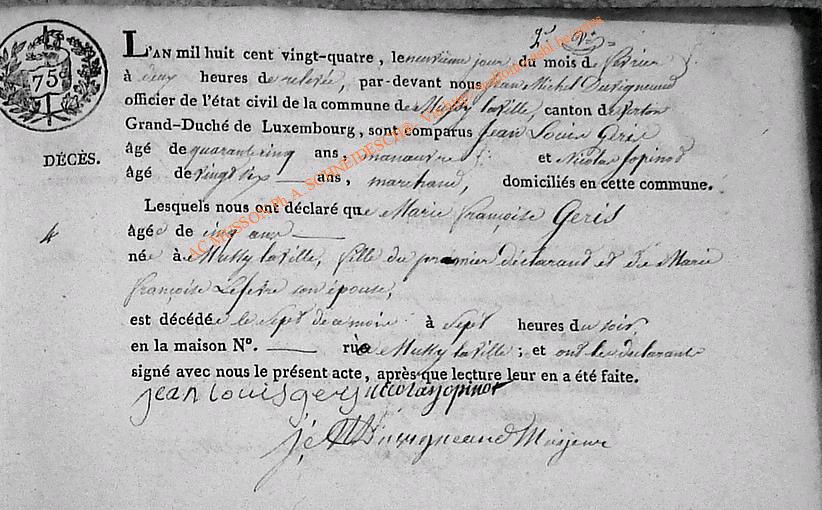 75
L'AN mil huit cent vingt-quatre, le neuvième jour du mois de février
à deux heures de relevée, par-devant nous Jean Michel Duvigneaud
officier de l'état civil de la commune de Mussy la Ville, canton de Virton
Grand-Duché de Luxembourg, sont comparus Jean Louis Geris
DÉCÈS.
âgé de quarante cinq ans, manœuvre et Nicolas Jopinot
âgé de vingt six ans, marchand, domiciliés en cette commune.
Lesquels nous ont déclaré que Marie françoise Geris
âgée de cinq ans
née à Mussy la Ville, fille du premier déclarant et de Marie
françoise Lefevre son épouse,
est décédée le sept de ce mois à sept heures du soir,
en la maison N°. rue Mussy la Ville ; et ont les déclarants
signé avec nous le présent acte, après que lecture leur en a été faite.
jean louis geris nicolas jopinot
J M Duvigneaud Mayeur
AC MUSSON Ph A. SCHNEIDESCH ©